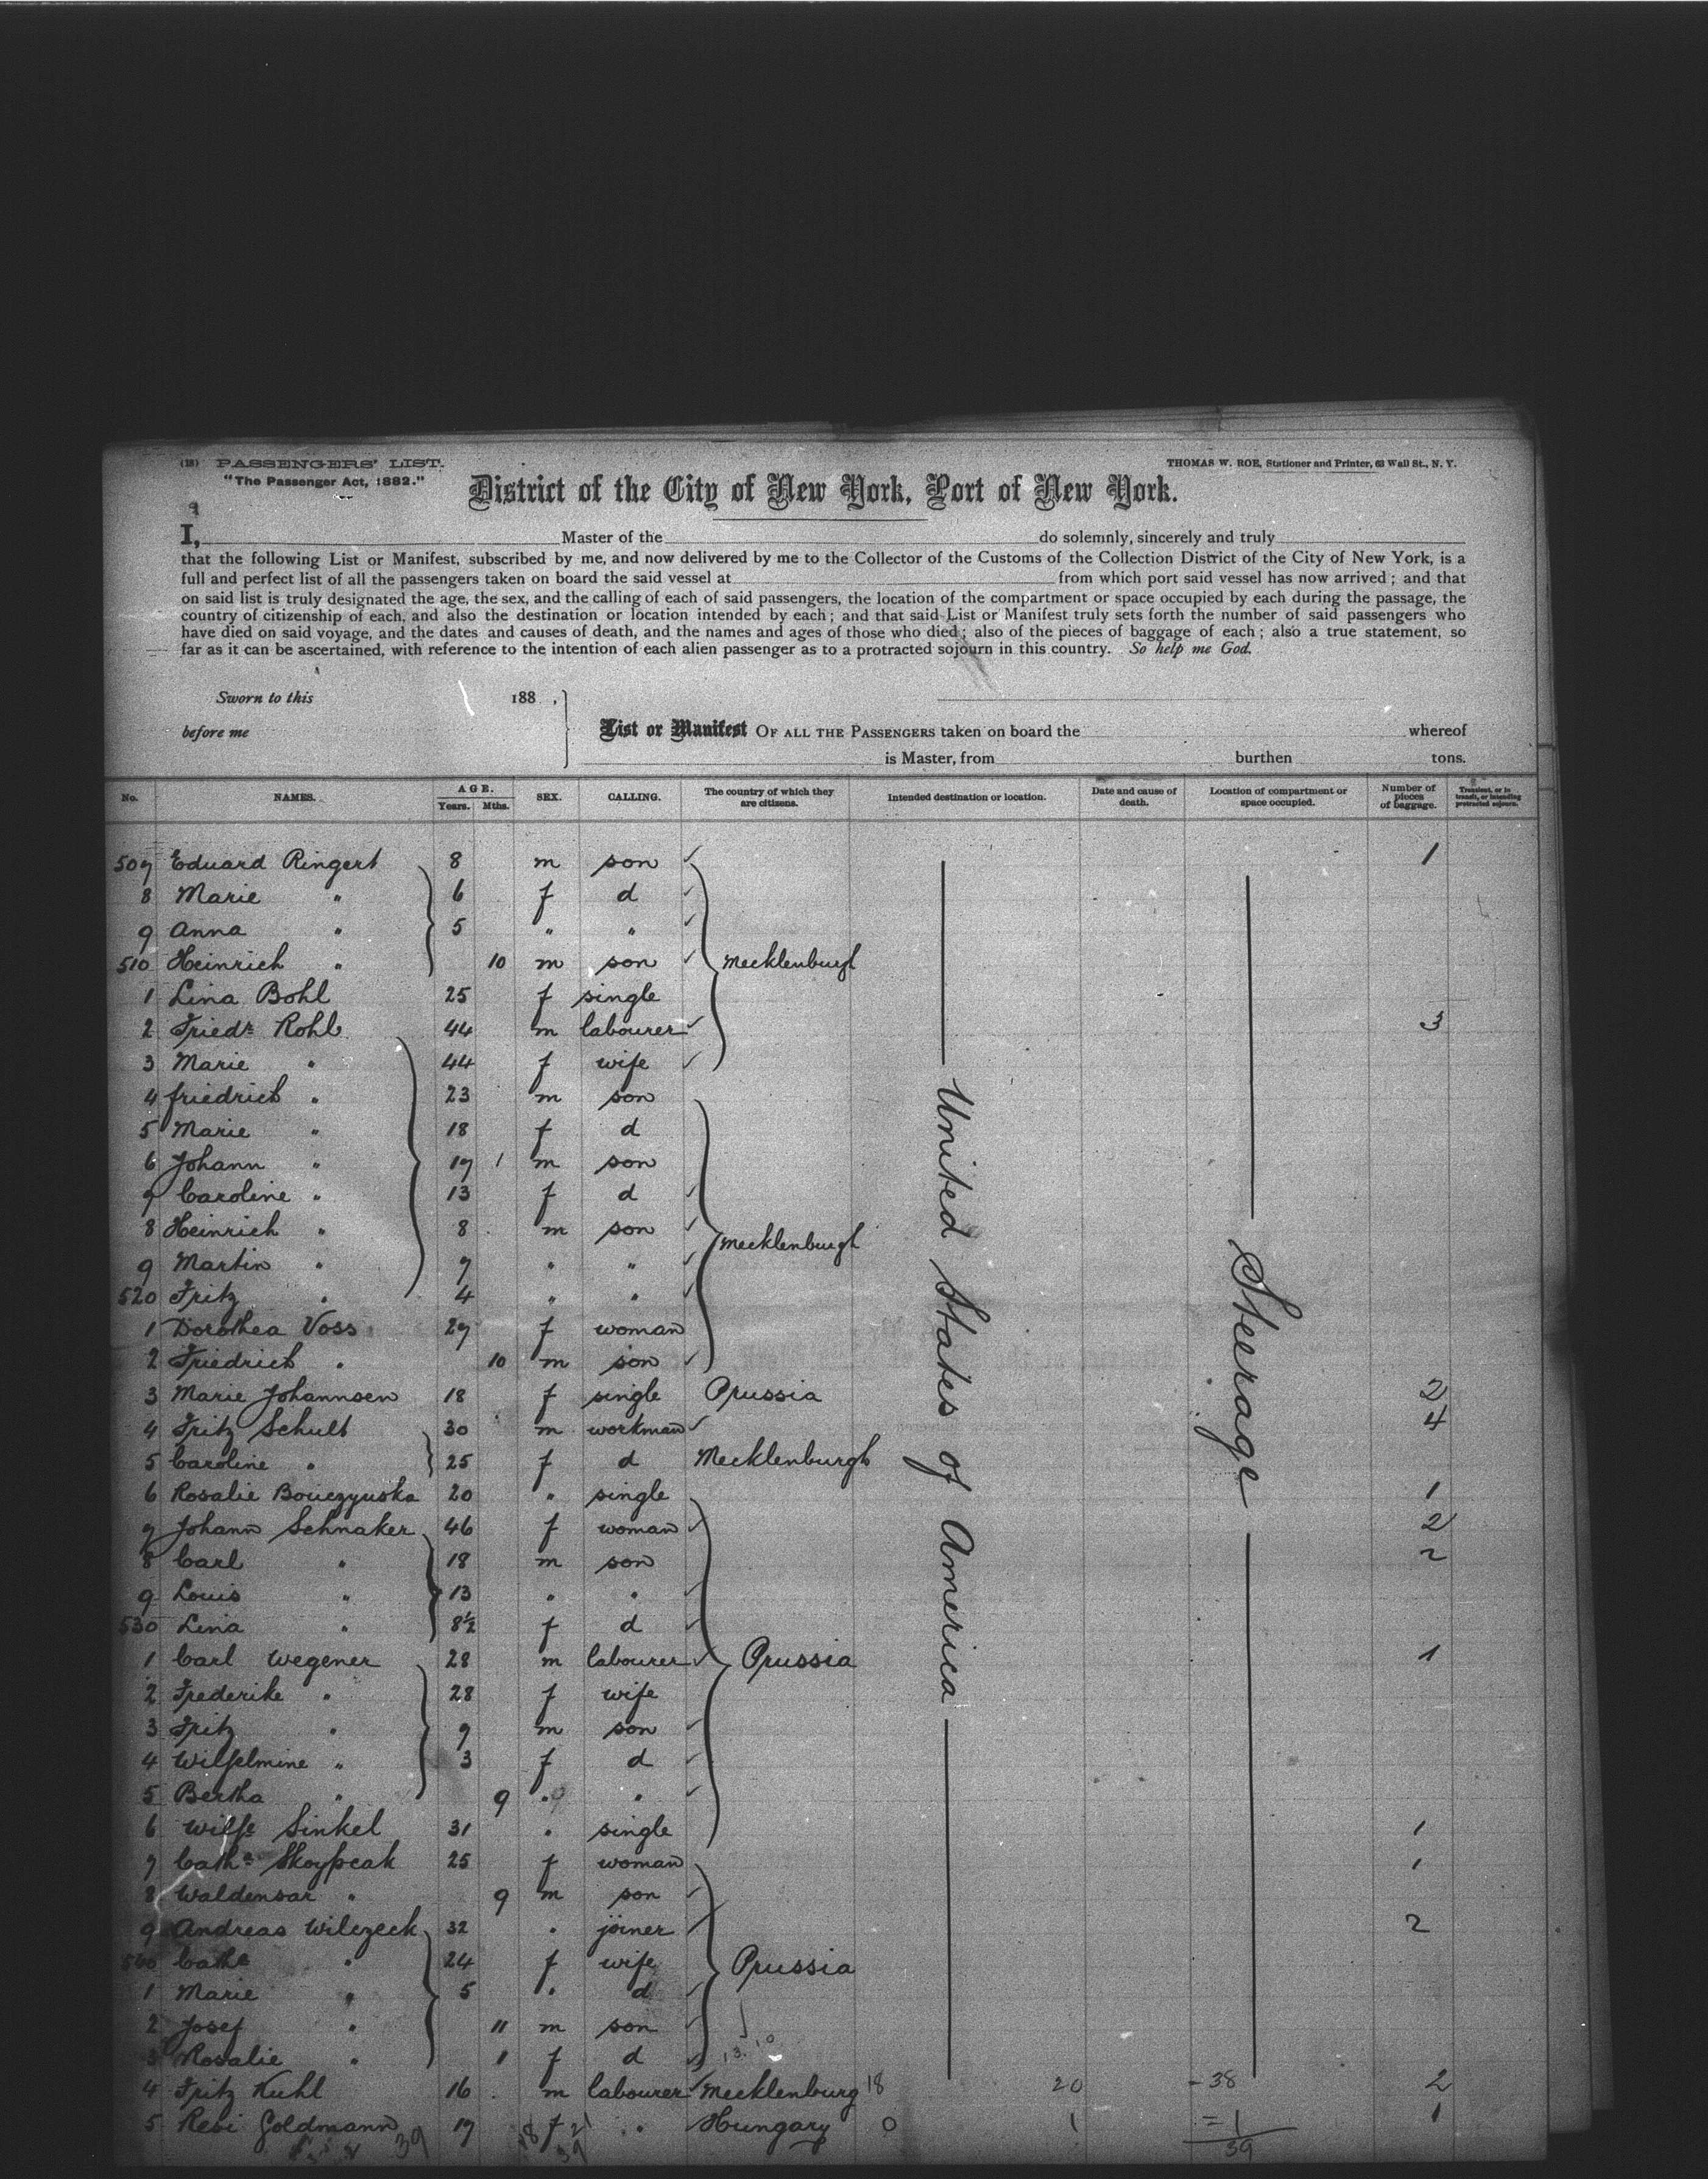 (18) PASSENGERS' LIST.
THOMAS W. ROE, Stationer and Printer, 63 Wall St., N. Y.
"The Passenger Act, 1882."
District of the City of New York, Port of New York.
I, Master of the do solemnly, sincerely and truly
that the following List or Manifest, subscribed by me, and now delivered by me to the Collector of the Customs of the Collection District of the City of New York, is a
full and perfect list of all the passengers taken on board the said vessel at from which port said vessel has now arrived; and that
on said list is truly designated the age, the sex, and the calling of each of said passengers, the location of the compartment or space occupied by each during the passage, the
country of citizenship of each, and also the destination or location intended by each; and that said List or Manifest truly sets forth the number of said passengers who
have died on said voyage, and the dates and causes of death, and the names and ages of those who died; also of the pieces of baggage of each; also a true statement, so
far as it can be ascertained, with reference to the intention of each alien passenger as to a protracted sojourn in this country. So help me God.
Sworn to this 188 .
before me
List or Manifest OF ALL THE PASSENGERS taken on board the whereof
is Master, from burthen tons.
No. NAMES. AGE. Years. Mths. SEX. CALLING. The country of which they are citizens. Intended destination or location. Date and cause of death. Location of compartment or space occupied. Number of pieces of baggage. Transient, or in transit, or intending protracted sojourn.
507 Eduard Ringert 8 m son ✓ 1
8 Marie " 6 f d ✓
9 Anna " 5 " " ✓
510 Heinrich " 10 m son ✓ Mecklenburgh
1 Lina Bohl 25 f single
2 Friedr Rohl 44 m labourer ✓ 3
3 Marie " 44 f wife ✓
4 friedrich " 23 m son
5 Marie " 18 f d
6 Johann " 17 1 m son
7 Caroline " 13 f d ✓
8 Heinrich " 8 m son ✓ Mecklenburgh
9 Martin " 7 " " ✓
520 Fritz " 4 " " ✓
1 Dorothea Voss 27 f woman
2 Friedrich " 10 m son ✓
3 Marie Johannsen 18 f single Prussia 2
4 Fritz Schult 30 m workman ✓ 4
5 Caroline " 25 f d Mecklenburgh
6 Rosalie 20 " single 1
7 Johann Schnaker 46 f woman ✓ 2
8 Carl " 18 m son 2
9 Louis " 13 " " ✓
530 Lina " 8½ f d ✓
1 Carl Wegener 28 m labourer ✓ Prussia 1
2 Frederike " 28 f wife
3 Fritz " 9 m son ✓
4 Wilhelmine " 3 f d ✓
5 Bertha " 9 " " ✓
6 Wilhe Sinkel 31 " single 1
7 Cathe 25 f woman 1
8 Waldensar " 9 m son ✓
9 Andreas Wilczeck 32 " joiner ✓ 2
540 Cathe " 24 f wife Prussia
1 Marie " 5 " d ✓
2 Josef " 11 m son ✓
3 Rosalie " 1 f d ✓
4 Fritz Kuhl 16 m labourer ✓ Mecklenburg 18 20 - 38 2
5 Resi Goldmann 17 f " Hungary 0 1 = 1 1
39
39
United States of America
Steerage